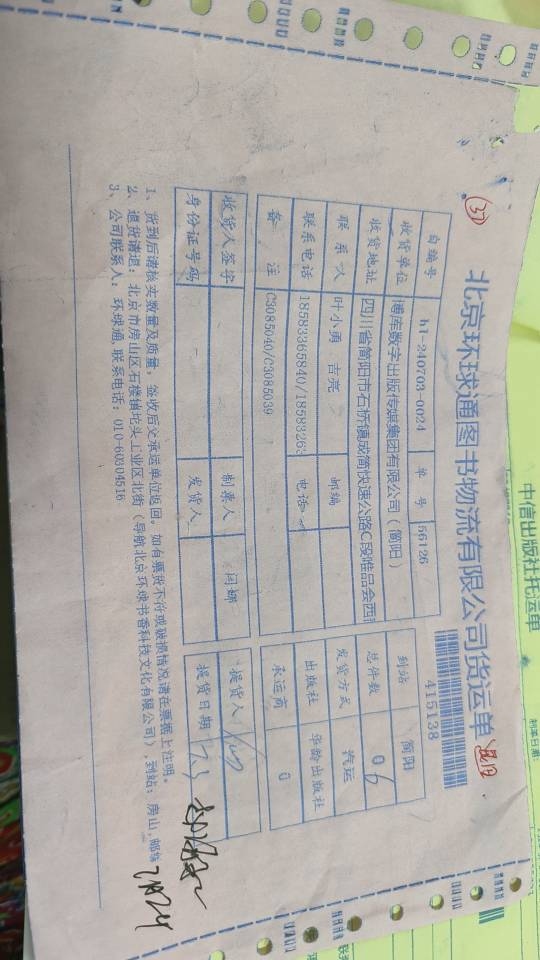 中信出版社托运单
制单日期:
北京环球通图书物流有限公司货运单
415138
自编号 ht-240703-0024 单号 56126
到站 简阳
收货单位 博库数字出版传媒集团有限公司(简阳)
总件数 06
收货地址 四川省简阳市石桥镇成简快速公路C段唯品会西
发货方式 汽运
联系人 叶小勇 吉亮 邮编
出版社 华龄出版社
联系电话 18583365840/1858326 电话
承运商 0
备注 C3085040/C3085039
收货人签字 制票人 闫娜 提货人
身份证号码 发货人 提货日期 7.3
1、货到后请核实数量及质量，签收后交承运单位返回。如有票货不符或破损情况,请在票据上注明。
2、退货请退：北京市房山区石楼镇坨头工业区北街（导航北京环球书香科技文化有限公司）,到站：房山,邮编
3、公司联系人：环球通,联系电话：010-60304516
7月24